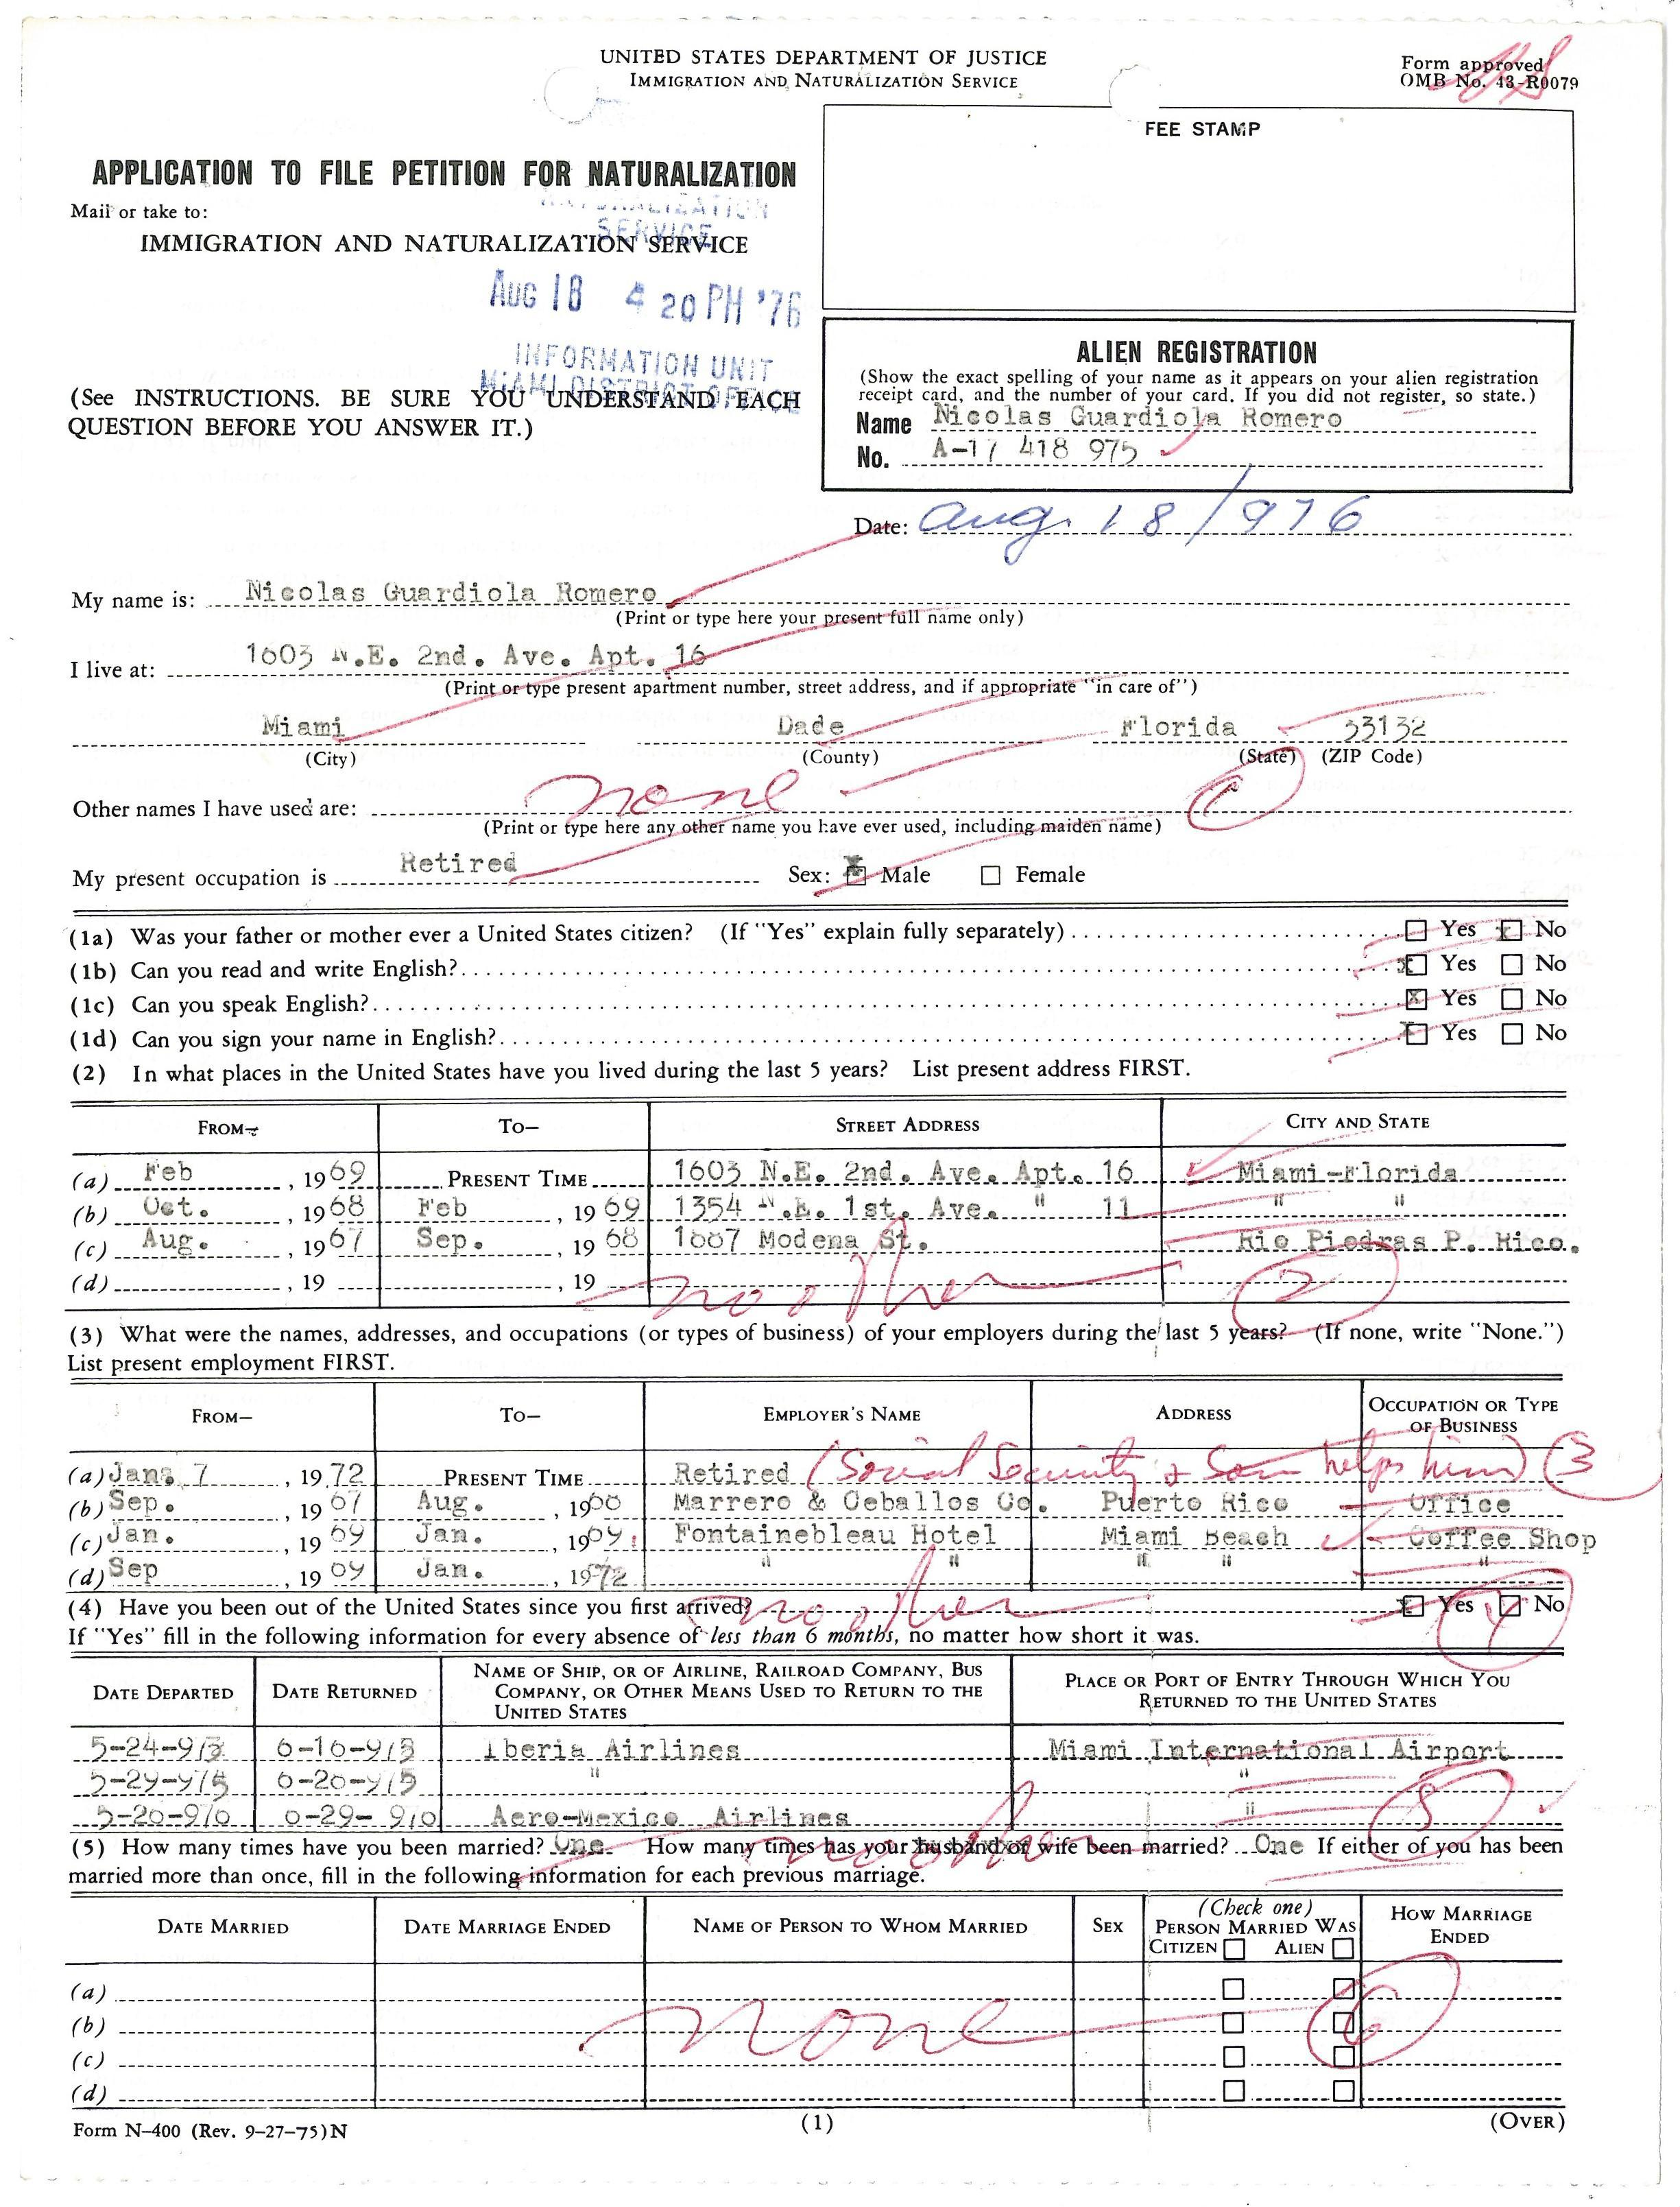 UNITED STATES DEPARTMENT OF JUSTICE
IMMIGRATION AND NATURALIZATION SERVICE
Form approved
OMB No. 43-R0079
FEE STAMP
APPLICATION TO FILE PETITION FOR NATURALIZATION
Mail or take to:
NATURALIZATION
SERVICE
IMMIGRATION AND NATURALIZATION SERVICE
AUG 18 4 20 PM '76
INFORMATION UNIT
MIAMI DISTRICT OFFICE
(See INSTRUCTIONS. BE SURE YOU UNDERSTAND EACH
QUESTION BEFORE YOU ANSWER IT.)
ALIEN REGISTRATION
(Show the exact spelling of your name as it appears on your alien registration
receipt card, and the number of your card. If you did not register, so state.)
Name Nicolas Guardiola Romero
No. A-17 418 975
Date: Aug. 18/976
My name is: Nicolas Guardiola Romero
(Print or type here your present full name only)
I live at: 1603 N.E. 2nd. Ave. Apt. 16
(Print or type present apartment number, street address, and if appropriate "in care of")
Miami Dade Florida 33132
(City) (County) (State) (ZIP Code)
Other names I have used are: none 1
(Print or type here any other name you have ever used, including maiden name)
My present occupation is Retired Sex: X Male Female
(1a) Was your father or mother ever a United States citizen? (If "Yes" explain fully separately) Yes x No
(1b) Can you read and write English? x Yes No
(1c) Can you speak English? x Yes No
(1d) Can you sign your name in English? x Yes No
(2) In what places in the United States have you lived during the last 5 years? List present address FIRST.
FROM— TO— STREET ADDRESS CITY AND STATE
(a) Feb , 1969 PRESENT TIME 1603 N.E. 2nd. Ave. Apt. 16 Miami-Florida
(b) Oct. , 1968 Feb , 1969 1354 N.E. 1st. Ave. " 11 " "
(c) Aug. , 1967 Sep. , 1968 1667 Modena St. Rio Piedras P. Rico.
(d) , 19 , 19 no other 2
(3) What were the names, addresses, and occupations (or types of business) of your employers during the last 5 years? (If none, write "None.")
List present employment FIRST.
FROM— TO— EMPLOYER'S NAME ADDRESS OCCUPATION OR TYPE OF BUSINESS
(a) Jan. 7 , 1972 PRESENT TIME Retired (Social Security & Son helps him) 3
(b) Sep. , 1967 Aug. , 1968 Marrero & Ceballos Co. Puerto Rico Office
(c) Jan. , 1969 Jan. , 1969. Fontainebleau Hotel Miami Beach Coffee Shop
(d) Sep , 1969 Jan. , 1972 " " " " "
(4) Have you been out of the United States since you first arrived? no other x Yes No 4
If "Yes" fill in the following information for every absence of less than 6 months, no matter how short it was.
DATE DEPARTED DATE RETURNED NAME OF SHIP, OR OF AIRLINE, RAILROAD COMPANY, BUS COMPANY, OR OTHER MEANS USED TO RETURN TO THE UNITED STATES PLACE OR PORT OF ENTRY THROUGH WHICH YOU RETURNED TO THE UNITED STATES
5-24-973 6-16-973 Iberia Airlines Miami International Airport
5-29-975 6-20-975 " "
5-20-976 6-29-976 Aero-Mexico Airlines " 5
no other
(5) How many times have you been married? One. How many times has your husband or wife been married? One If either of you has been
married more than once, fill in the following information for each previous marriage.
DATE MARRIED DATE MARRIAGE ENDED NAME OF PERSON TO WHOM MARRIED SEX (Check one) PERSON MARRIED WAS CITIZEN ALIEN HOW MARRIAGE ENDED
(a)
(b) none 6
(c)
(d)
Form N-400 (Rev. 9-27-75)N (1) (OVER)